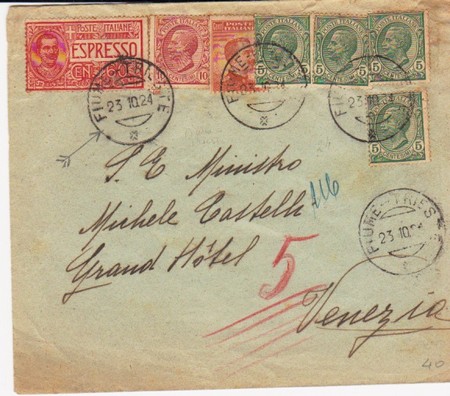 POSTE ITALIANE
ESPRESSO
10
5 5 5
5
FIUME-TRIESTE
23.10.24
FIUME-TRIESTE
FIUME-TRIESTE
23.10
FIUME-TRIESTE
23.10.24
S. E Ministro
Michele Castelli
116
Grand Hôtel
5
Venezia
40